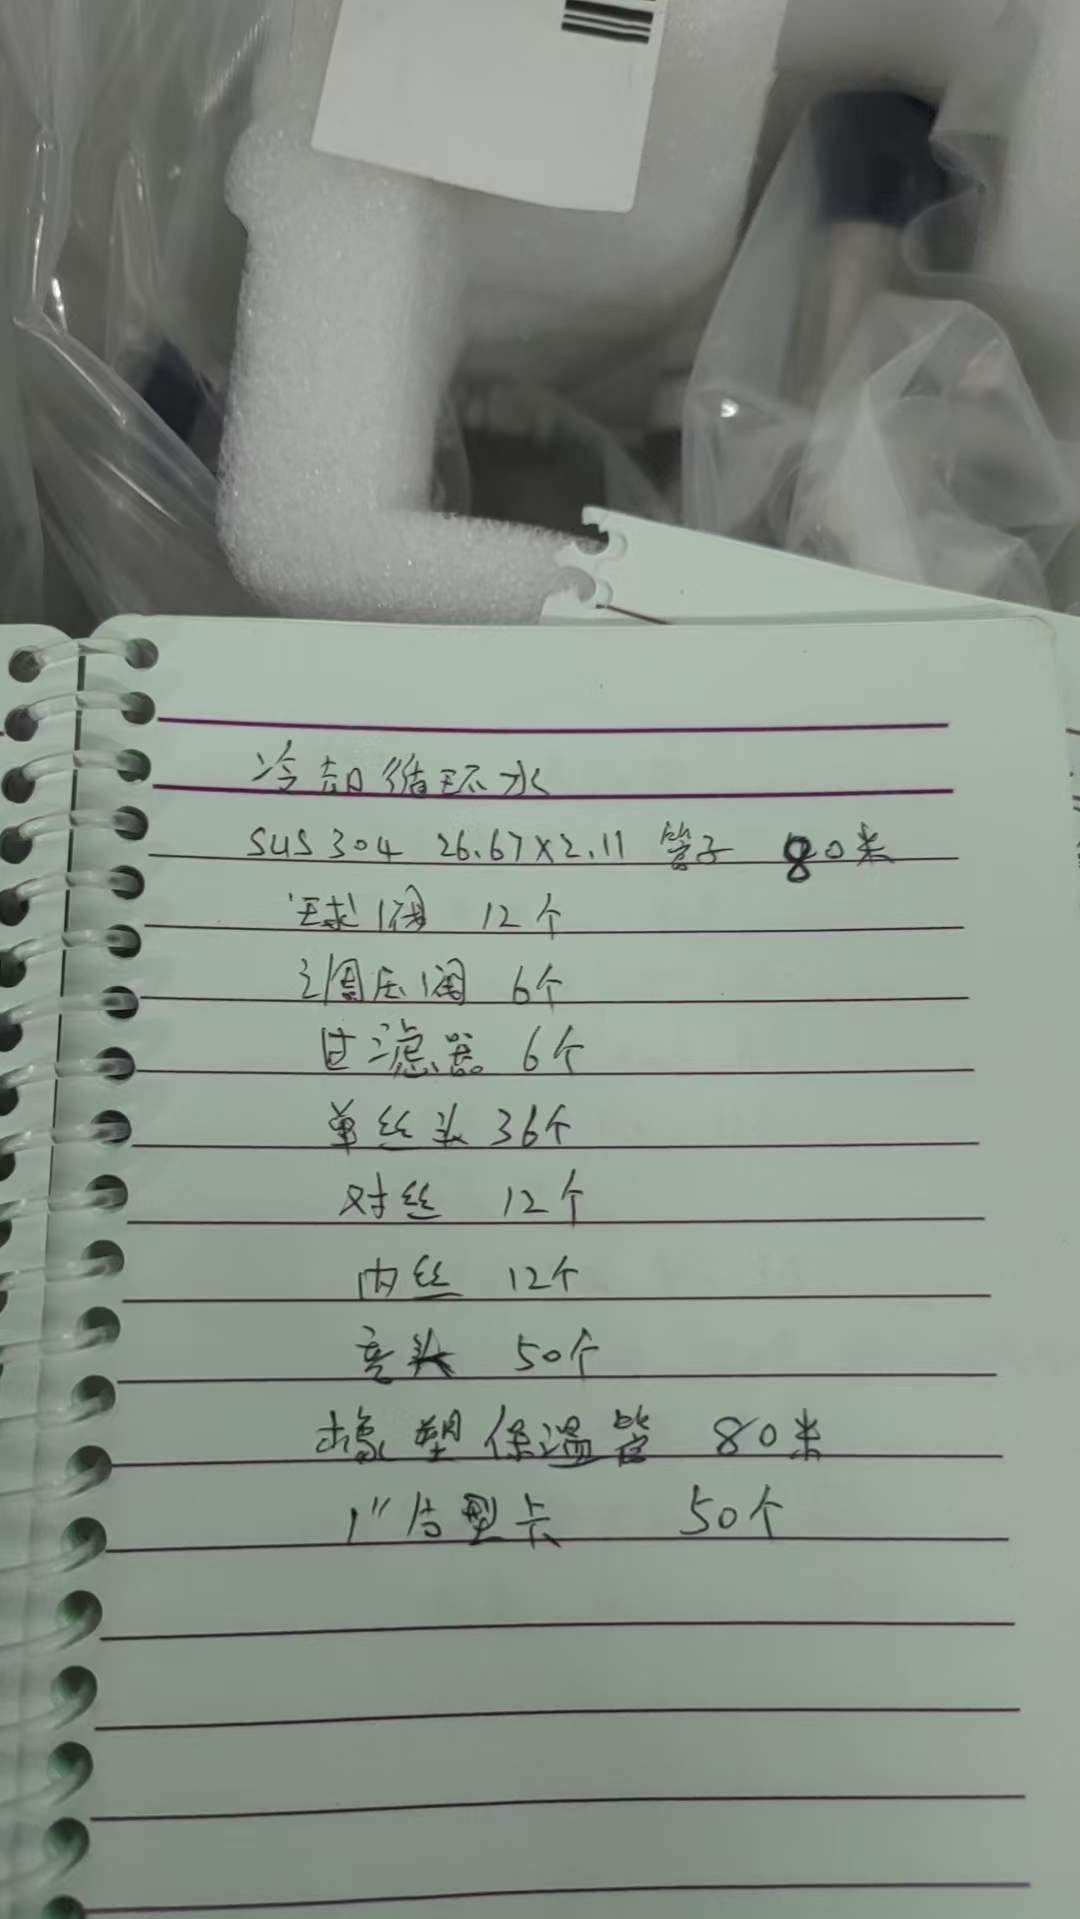 冷却循环水
SUS304 26.67×2.11 管子 80米
球阀 12个
调压阀 6个
过滤器 6个
单丝头 36个
对丝 12个
内丝 12个
弯头 50个
橡塑保温管 80米
1" 型卡 50个